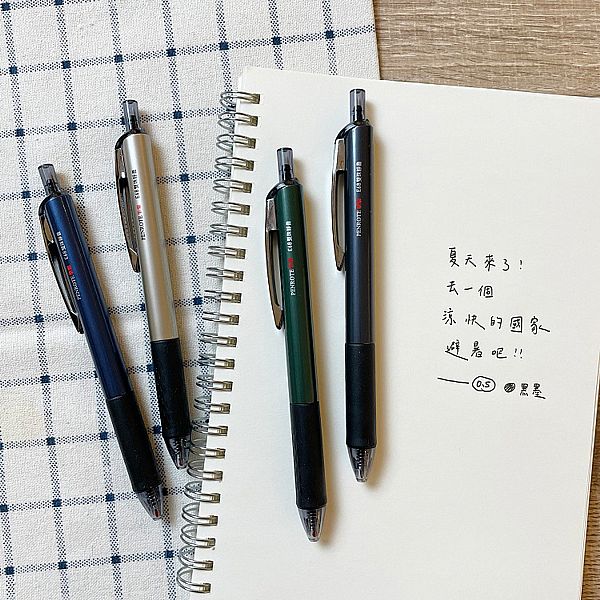 PENROTE
PENROTE
PENROTE
PENROTE
夏天來了!
去一個
涼快的國家
避暑吧!!
—— 0.5 黑墨